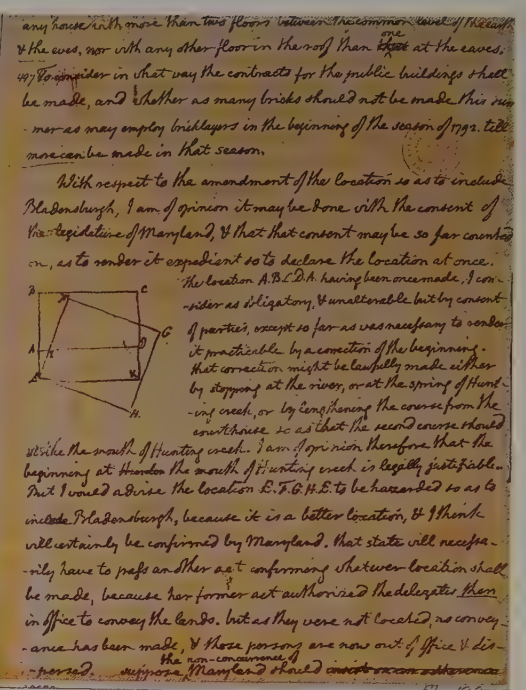 any house with more than two floors between the common level of the earth
& the eves, nor with any other floor in the roof than one at the eaves.
To consider in what way the contracts for the public buildings shall
be made, and whether as many bricks should not be made this sum
-mer as may employ bricklayers in the beginning of the season of 1792. till
more can be made in that season.
With respect to the amendment of the location so as to include
Bladensburgh, I am of opinion it may be done with the consent of
the legislature of Maryland, & that that consent may be so far counted
on, as to render it expedient so to declare the location at once.
B C
G
A D
E K
H
the location A.B.C.D.A. having been once made, I con-
-sider as obligatory, & unalterable but by consent
of parties, except so far as was necessary to render
it practicable by a correction of the beginning.
that correction might be lawfully made either
by stopping at the river, or at the spring of Hunt-
-ing creek, or by lengthening the course from the
courthouse so as that the second course should
strike the mouth of Hunting creek. I am of opinion therefore that the
beginning at the mouth of Hunting creek is legally justifiable.
But I would advise the location E.F.G.H.E. to be hazarded so as to
include Bladensburgh, because it is a better location, & I think
will certainly be confirmed by Maryland. that state will necessa-
-rily have to pass another act confirming whatever location shall
be made, because her former act authorized the delegates then
in office to convey the lands. but as they were not located, no convey-
-ance has been made, & those persons are now out of office & dis-
the non-concurrence of
-persed. suppose Maryland should